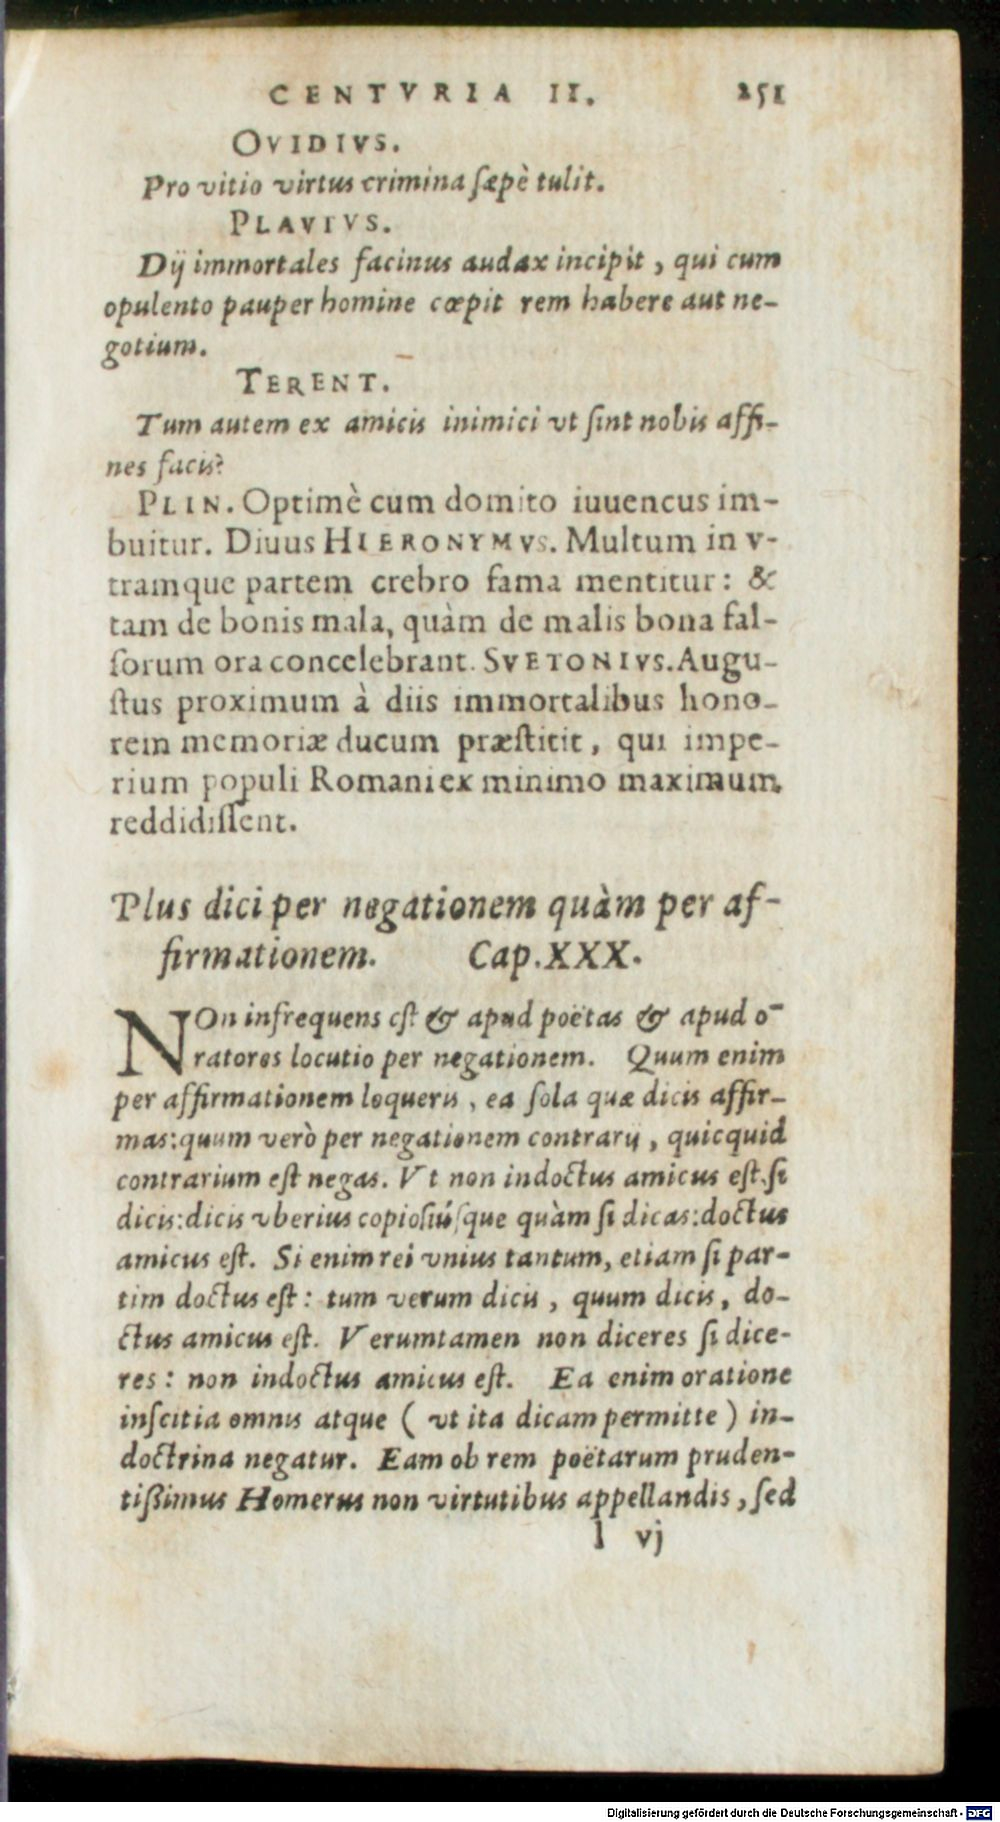 CENTVRIA II. 251
OVIDIVS.
Pro vitio virtus crimina sæpè tulit.
PLAVTVS.
Dij immortales facinus audax incipit, qui cum
opulento pauper homine cœpit rem habere aut ne-
gotium.
TERENT.
Tum autem ex amicis inimici vt sint nobis affi-
nes facis?
PLIN. Optimè cum domito iuuencus im-
buitur. Diuus HIERONYMVS. Multum in v-
tramque partem crebro fama mentitur: &
tam de bonis mala, quàm de malis bona fal-
sorum ora concelebrant. SVETONIVS. Augu-
stus proximum à diis immortalibus hono-
rem memoriæ ducum præstitit, qui impe-
rium populi Romani ex minimo maximum
reddidissent.
Plus dici per negationem quàm per af-
firmationem. Cap. XXX.
NOn infrequens est & apud poëtas & apud o-
ratores locutio per negationem. Quum enim
per affirmationem loqueris, ea sola quæ dicis affir-
mas: quum verò per negationem contrarij, quicquid
contrarium est negas. Vt non indoctus amicus est, si
dicis: dicis vberius copiosiúsque quàm si dicas: doctus
amicus est. Si enim rei vnius tantum, etiam si par-
tim doctus est: tum verum dicis, quum dicis, do-
ctus amicus est. Verumtamen non diceres si dice-
res: non indoctus amicus est. Ea enim oratione
inscitia omnis atque (vt ita dicam permitte) in-
doctrina negatur. Eam ob rem poëtarum pruden-
tißimus Homerus non virtutibus appellandis, sed
l vj
Digitalisierung gefördert durch die Deutsche Forschungsgemeinschaft - DFG